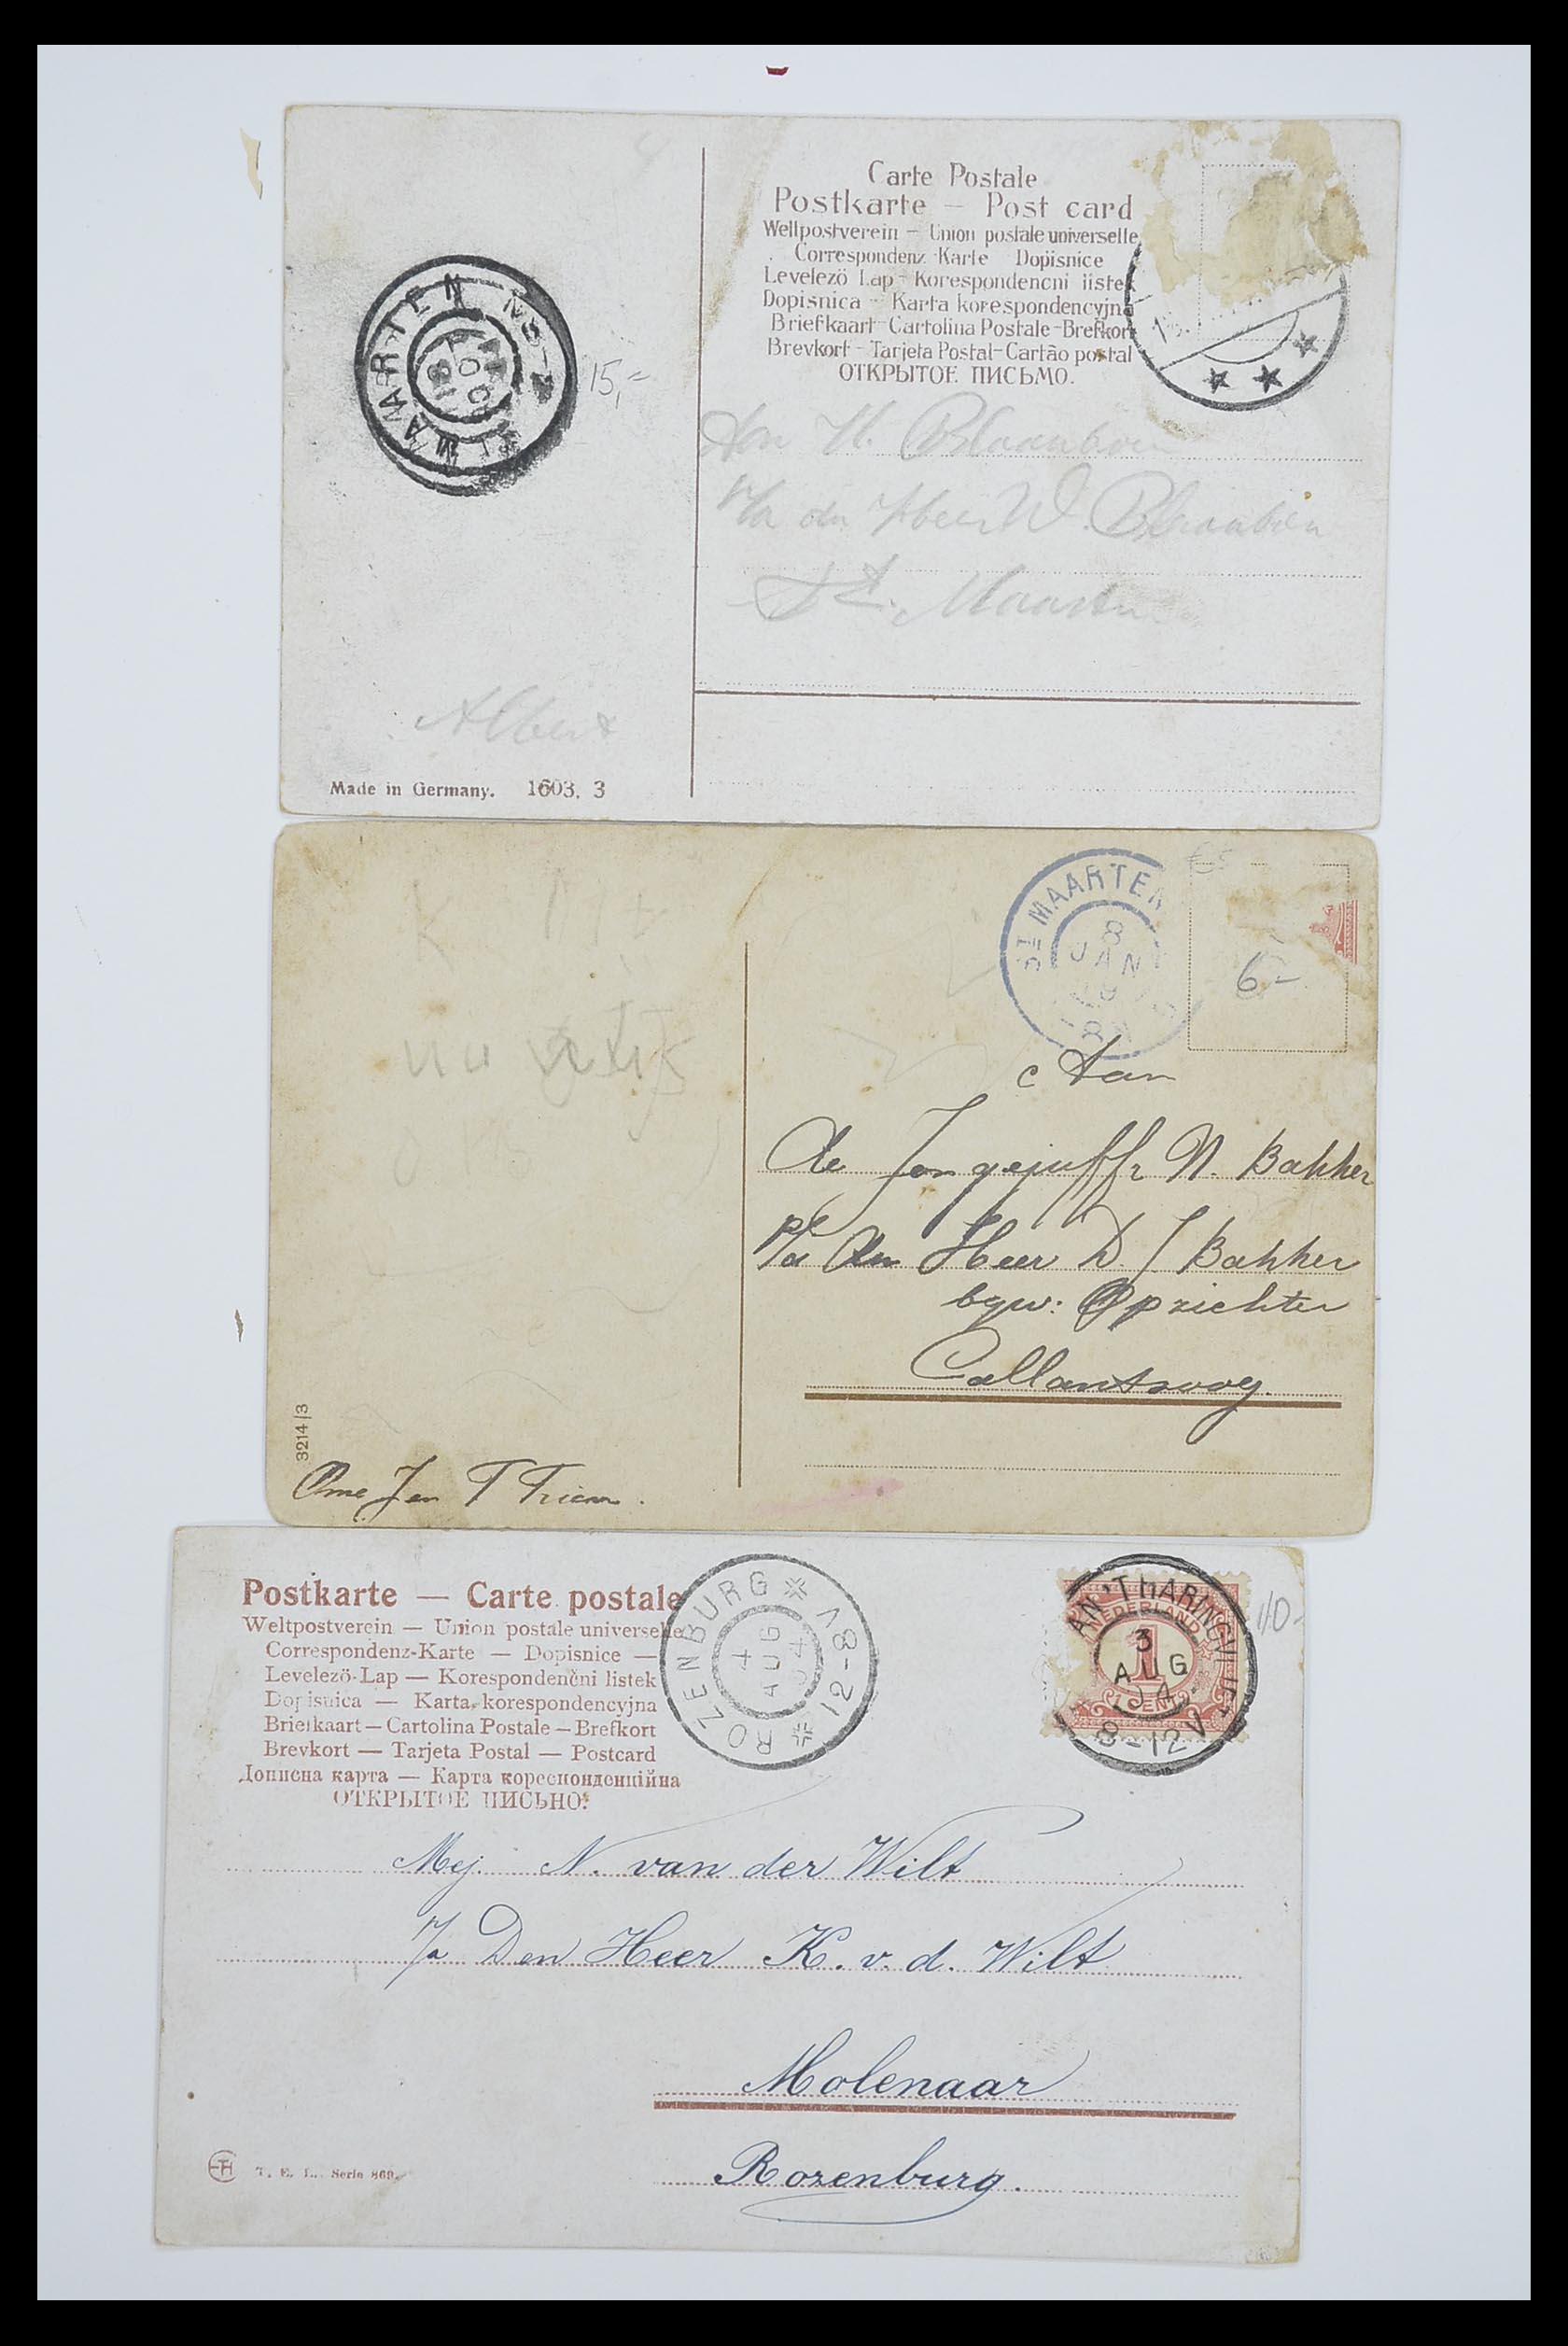 Carte Postale
Postkarte — Post card
Weltpostverein – Union postale universelle
Correspondenz-Karte Dopisnice
Levelező Lap – Korespondencni listek
Dopisnica – Karta korespondencyjna
Briefkaart – Cartolina Postale – Brefkort
Brevkort – Tarjeta Postal – Cartão postal
ОТКРЫТОЕ ПИСЬМО.
ST MAARTEN
15,=
W.
St. Maarten
Albert
Made in Germany. 1603. 3
ST MAARTEN
8
JAN
6-
Aan
de Jongejuffr N. Bakker
p/a den Heer D. J Bakker
bgw: Opzichter
Callantsoog.
3214/3
Ome Jan T Trien.
Postkarte — Carte postale
Weltpostverein — Union postale universelle
Correspondenz-Karte — Dopisnice —
Levelező-Lap — Korespondenčni listek
Dopisnica — Karta korespondencyjna
Briefkaart — Cartolina Postale — Brefkort
Brevkort — Tarjeta Postal — Postcard
Дописна карта — Карта кореспонденцiйна
ОТКРЫТОЕ ПИСЬНО.
ROZENBURG
4
AUG
04
12-8V
AN 'T HARINGVLIET
NEDERLAND
1
CENT
3
AUG
04
8-12V
10-
Mej. N. van der Wilt
p/a Den Heer K. v. d. Wilt
Molenaar
Rozenburg.
T. E. L. Serie 869.